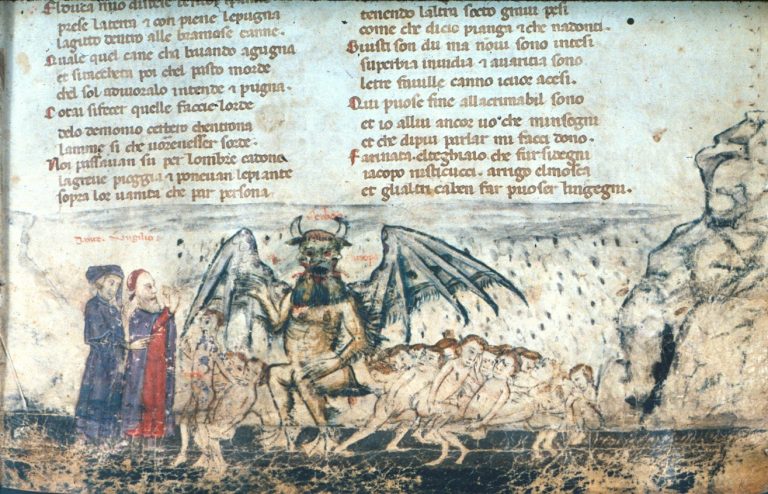 prese laterra & con piene lepugna
lagitto dentro alle bramose canne.
Quale quel cane cha baiando agugna
et siracheta poi chel pasto morde
che sol adivoralo intende & pugna.
Cotai sifecer quelle faccie lorde
delo demonio cerbero chentrona
lamme si che vorenesser sorde.
Noi passavan su per lombre cadona
lagreve pioggia & ponevan lepiante
sopra lor vanita che par persona
tenendo laltra socto gravi pesi
come che dicio pianga & che nadonti.
Giusti son du ma novi sono intesi
superbia invidia & avaritia sono
letre faville canno icuor acesi.
Qui puose fine allacrimabil sono
et io allui ancor vo che minsegni
et che dipiu parlar mi facci dono.
Farinata. eltegbiaio che fur sidegni
iacopo rusticucci. arrigo elmosca
et glialtri caben far puoser lingegni.
dante. virgilio.